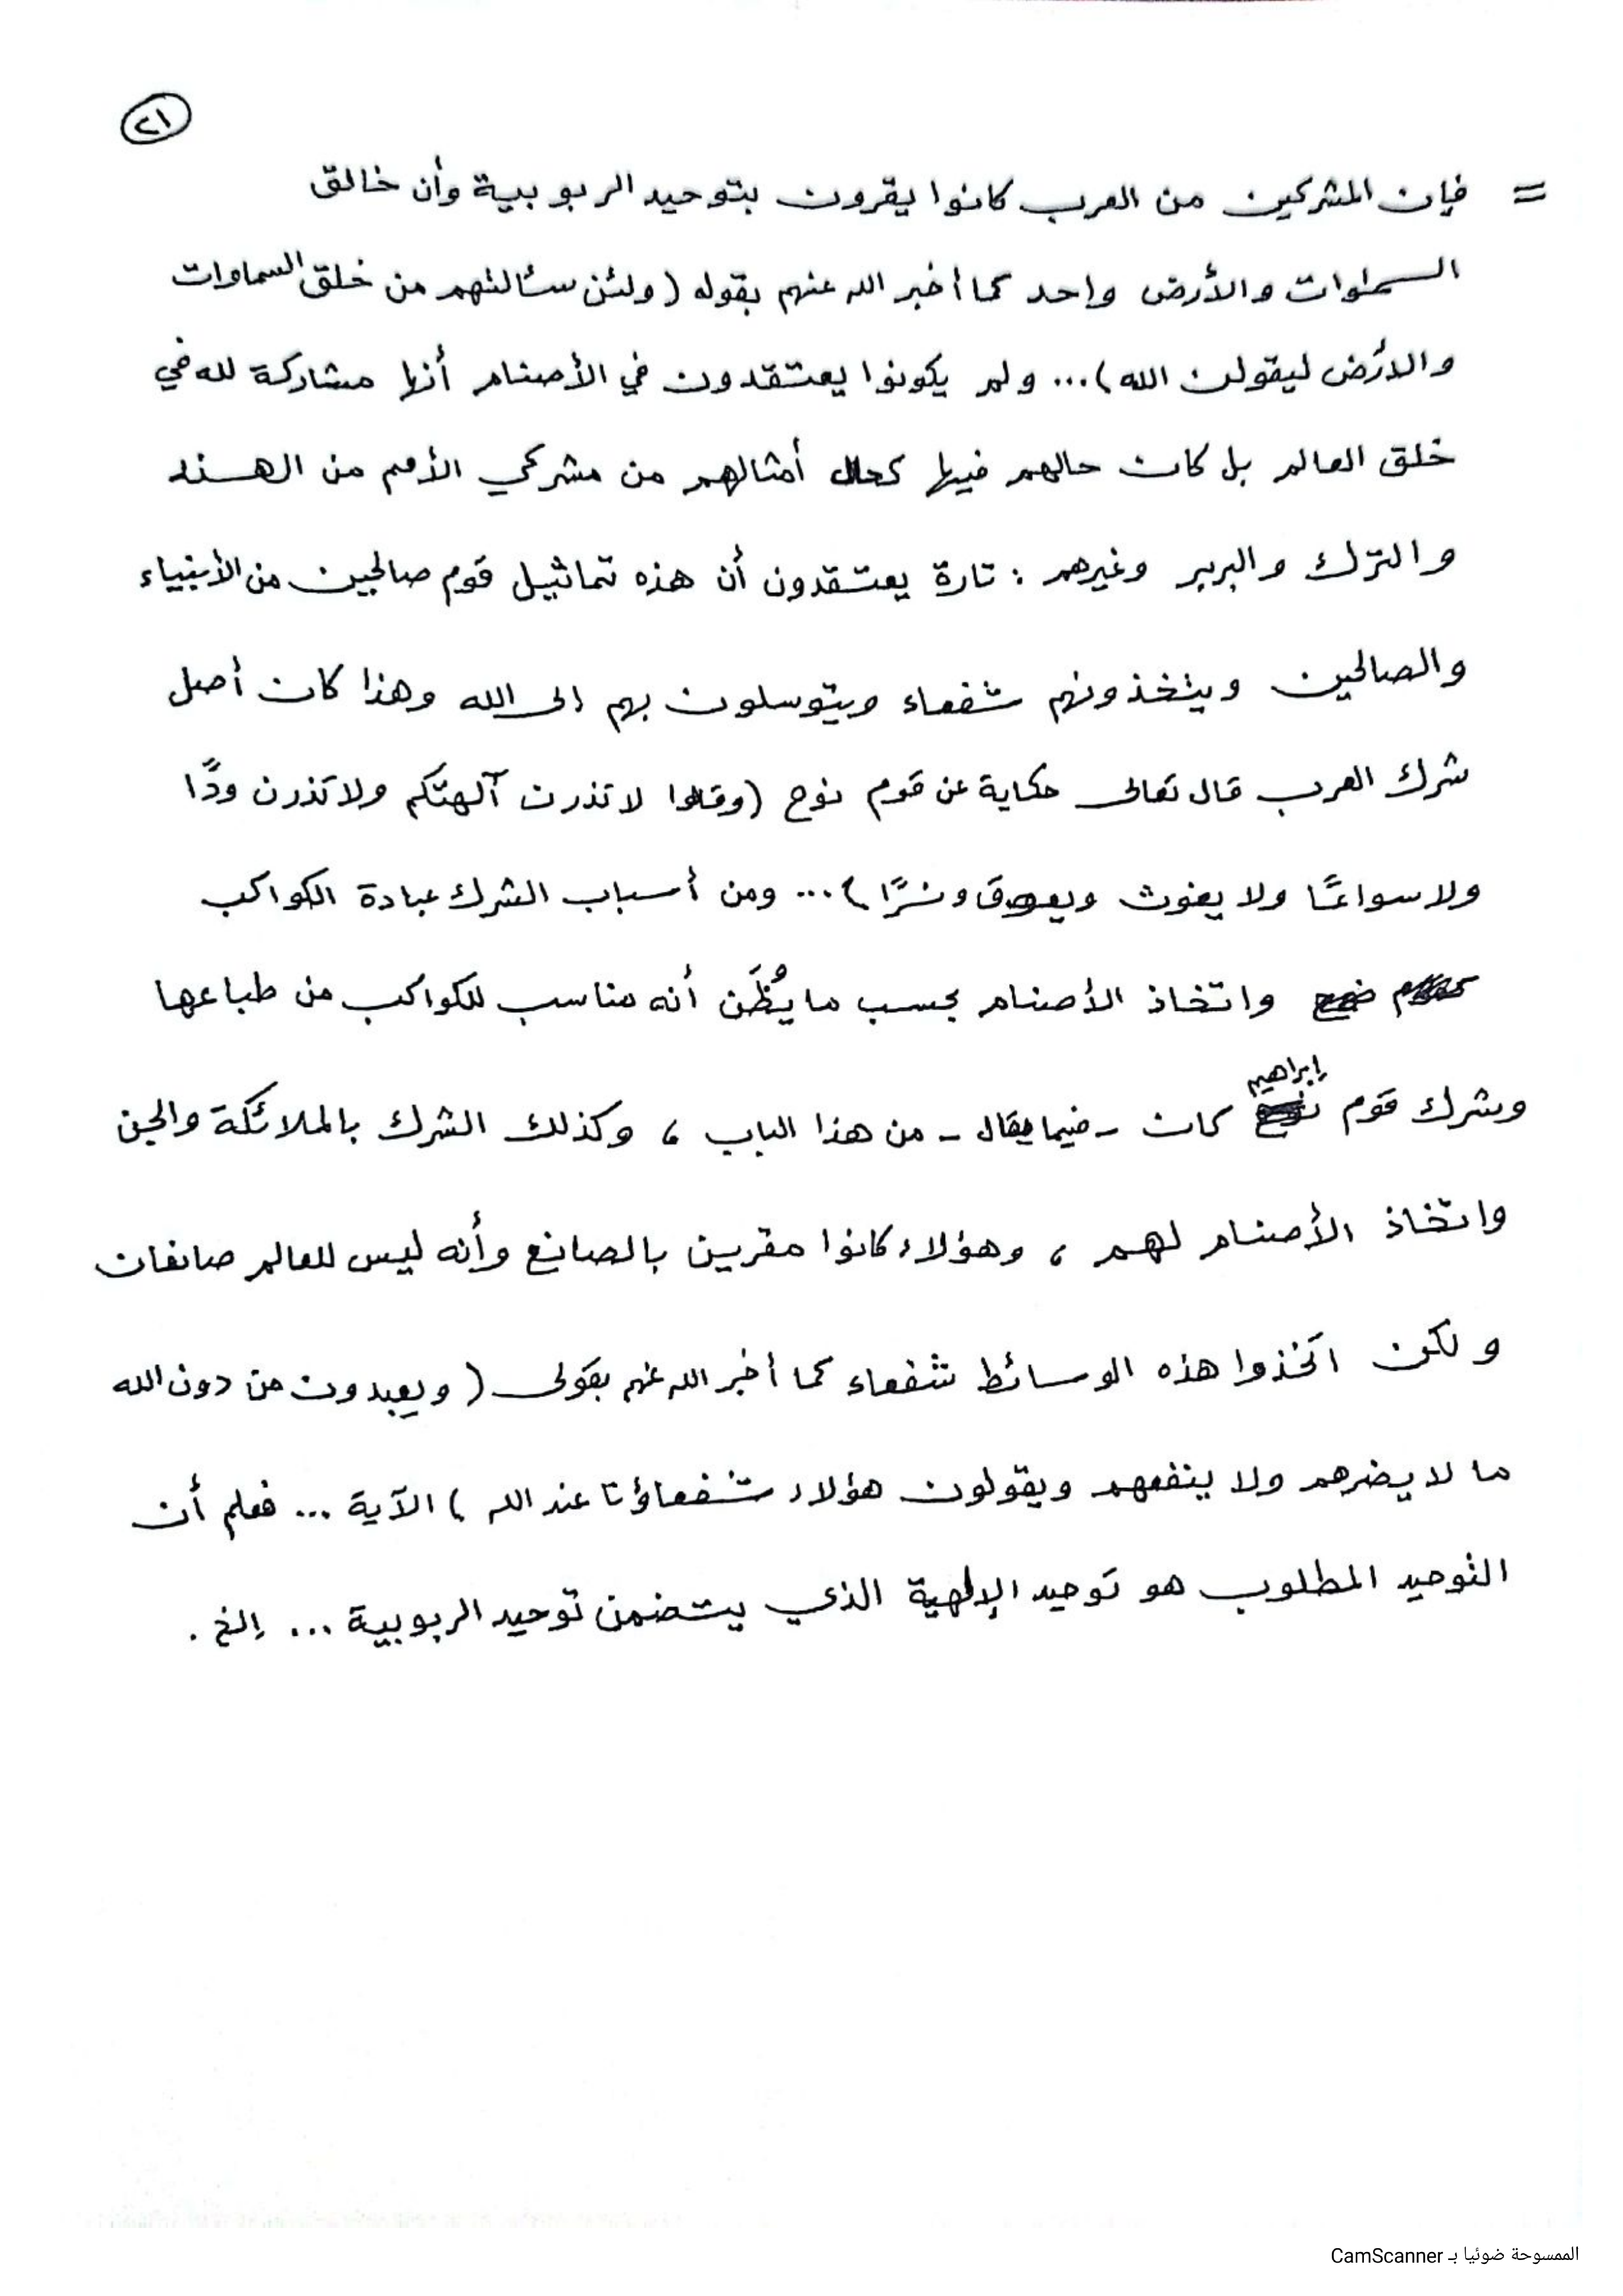 ٢١
= فإن المشركين من العرب كانوا يقرون بتوحيد الربوبية وأن خالق
السماوات والأرض واحد كما أخبر الله عنهم بقوله ( ولئن سألتهم من خلق السماوات
والأرض ليقولن الله ) ... ولم يكونوا يعتقدون في الأصنام أنها مشاركة لله في
خلق العالم بل كان حالهم فيها كحال أمثالهم من مشركي الأمم من الهند
والترك والبربر وغيرهم : تارة يعتقدون أن هذه تماثيل قوم صالحين من الأنبياء
والصالحين ويتخذونهم شفعاء ويتوسلون بهم إلى الله وهذا كان أصل
شرك العرب قال تعالى حكاية عن قوم نوح ( وقالوا لا تذرن آلهتكم ولا تذرن ودًّا
ولا سواعًا ولا يغوث ويعوق ونسرًا ) ... ومن أسباب الشرك عبادة الكواكب
واتخاذ الأصنام بحسب ما يُظَن أنه مناسب للكواكب من طباعها
وشرك قوم إبراهيم كان - فيما يقال - من هذا الباب ، وكذلك الشرك بالملائكة والجن
واتخاذ الأصنام لهم ، وهؤلاء كانوا مقرين بالصانع وأنه ليس للعالم صانعان
ولكن اتخذوا هذه الوسائط شفعاء كما أخبر الله عنهم بقولى ( ويعبدون من دون الله
ما لا يضرهم ولا ينفعهم ويقولون هؤلاء شفعاؤنا عند الله ) الآية ... فعلم أن
التوحيد المطلوب هو توحيد الإلهية الذي يتضمن توحيد الربوبية ... إلخ .
الممسوحة ضوئيا بـ CamScanner